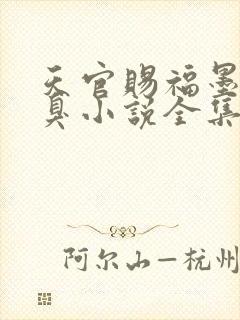 天官赐福墨
臭小说全集
阿尔山—杭州